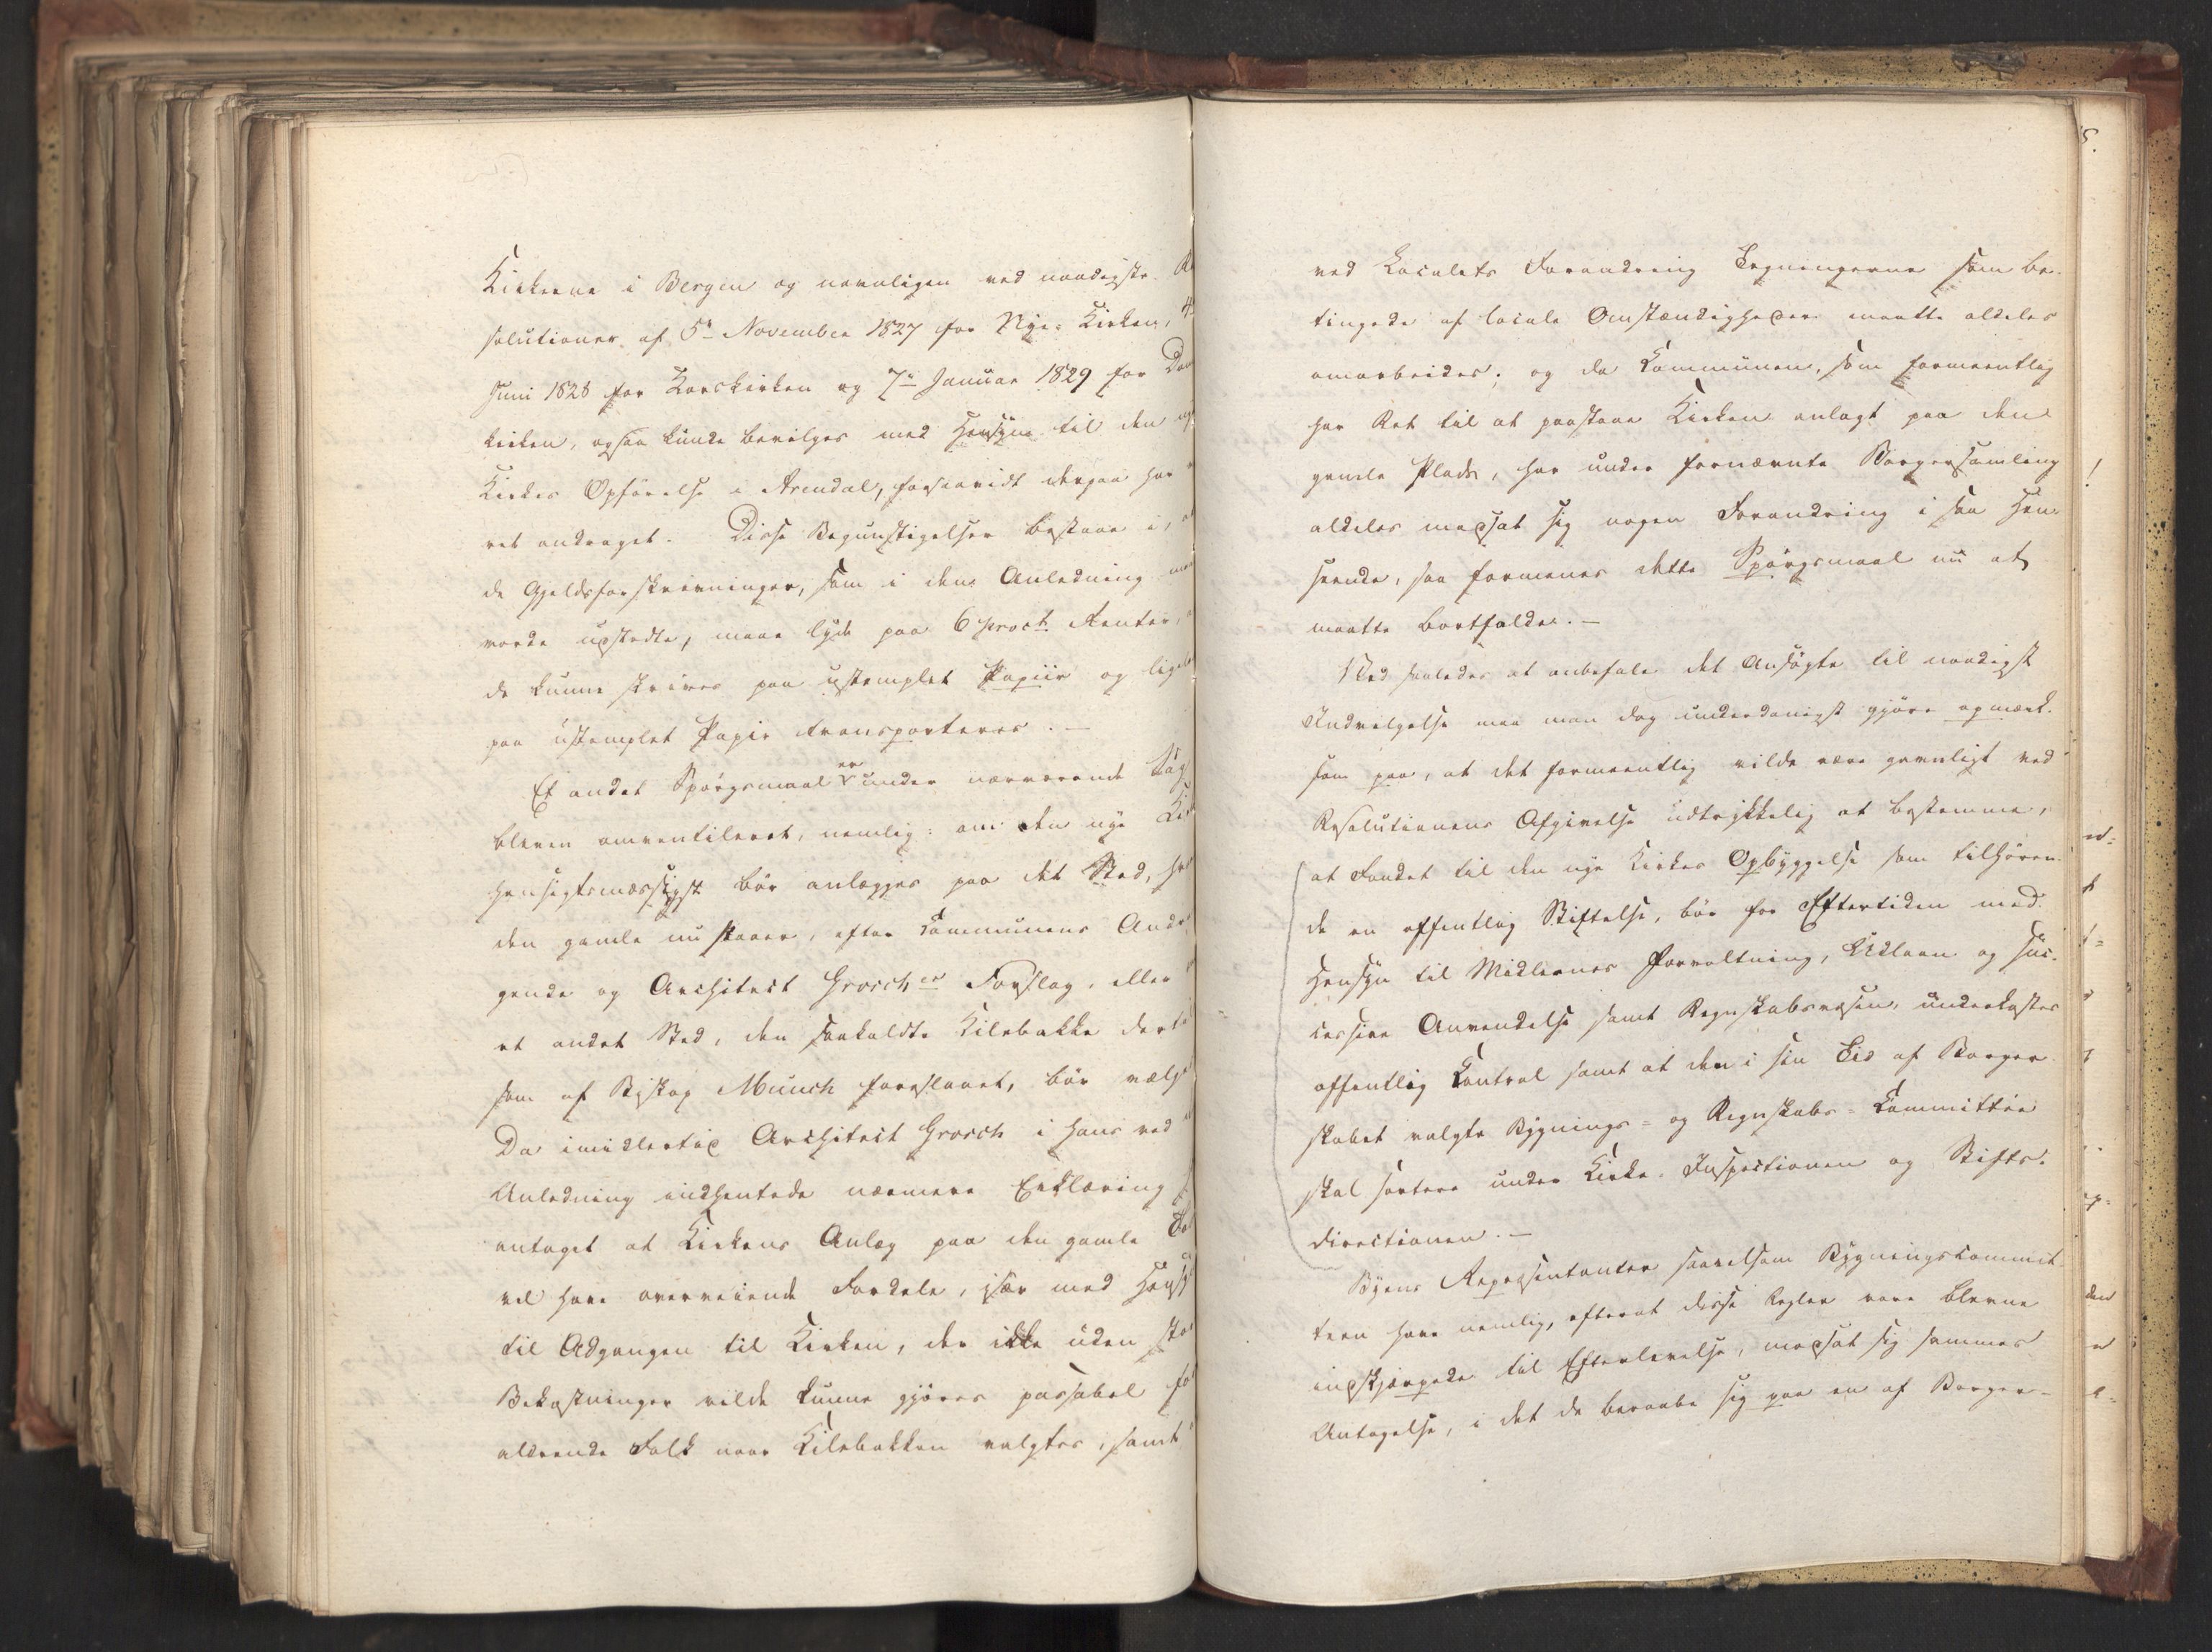 Kirkerne i Bergen og navnligen ved naadigste Re
solutioner af 5te November 1827 for Nye-Kirken, 4
Juni 1828 for Korskirken og 7de Januar 1829 for Dom
kirken, ogsaa kunde bevilges med Hensyn til den nye
Kirkes Opførelse i Arendal, forsaavidt derpaa har
ret andraget. Disse Begunstigelser bestaae i, at
de Gjeldsforskrivninger, som i den Anledning
vorde udstedte, maae lyde paa 6 proct Renter,
de kunne skrives paa ustemplet Papiir og lige
paa ustemplet Papir transporteres. –
Et andet Spørgsmaal er under nærværende Sag
bleven omventileret, nemlig: om den nye Kir
hensigtsmæssigst bør anlægges paa det Sted, hvor
den gamle nu staaer, efter Communens Andra
gende og Architect Grosch's Forslag, eller
et andet Sted, den saakaldte Kilebakke
som af Biskop Munch foreslaaet, bør vælge
Da imidlertid Architect Grosch i hans ved
Anledning indhentede nærmere Erklæring
antaget at Kirkens Anlæg paa den gamle
vil have overveiende Fordele, især med Hensyn
til Adgangen til Kirken, der ikke uden sto
Bekostninger vilde kunne gjøres passabel for
aldrende Folk naar Kilebakken valgtes, samt
ved Localets Forandring Tegningerne som be-
tingede af locale Omstændigheder maatte aldeles
omarbeides; og da Communen, som formeentlig
har Ret til at paastaae Kirken anlagt paa den
gamle Plads, har under fornævnte Borgersamling
aldeles modsat sig nogen Forandring i saa Hen-
seende, saa formenes dette Spørgsmaal nu at
maatte bortfalde. –
Ved saaledes at anbefale det Ansøgte til naadigst
Indvilgelse maa man dog underdanigst gjøre opmærk-
som paa, at det formeentlig vilde være gavnligt ved
Resolutionens Afgivelse udtrykkelig at bestemme,
at Fondet til den nye Kirkes Opbyggelse som tilhøren-
de en offentlig Stiftelse, bør for Eftertiden med
Hensyn til Midlernes Forvaltning, Udlaan og suc-
cessive Anvendelse samt Regnskabsvæsen, underkastes
offentlig Control samt at den i sin Tid af Borger-
skabet valgte Bygnings- og Regnskabs-Committee
skal sortere under Kirke-Inspectionen og Stifts-
directionen. –
Byens Repræsentanter saavelsom Bygningscommit-
teen have nemlig, efterat disse Regler vare blevne
indskjærpede til Efterlevelse, modsat sig sammes
Antagelse, i det de beraabe sig paa en af Borger-